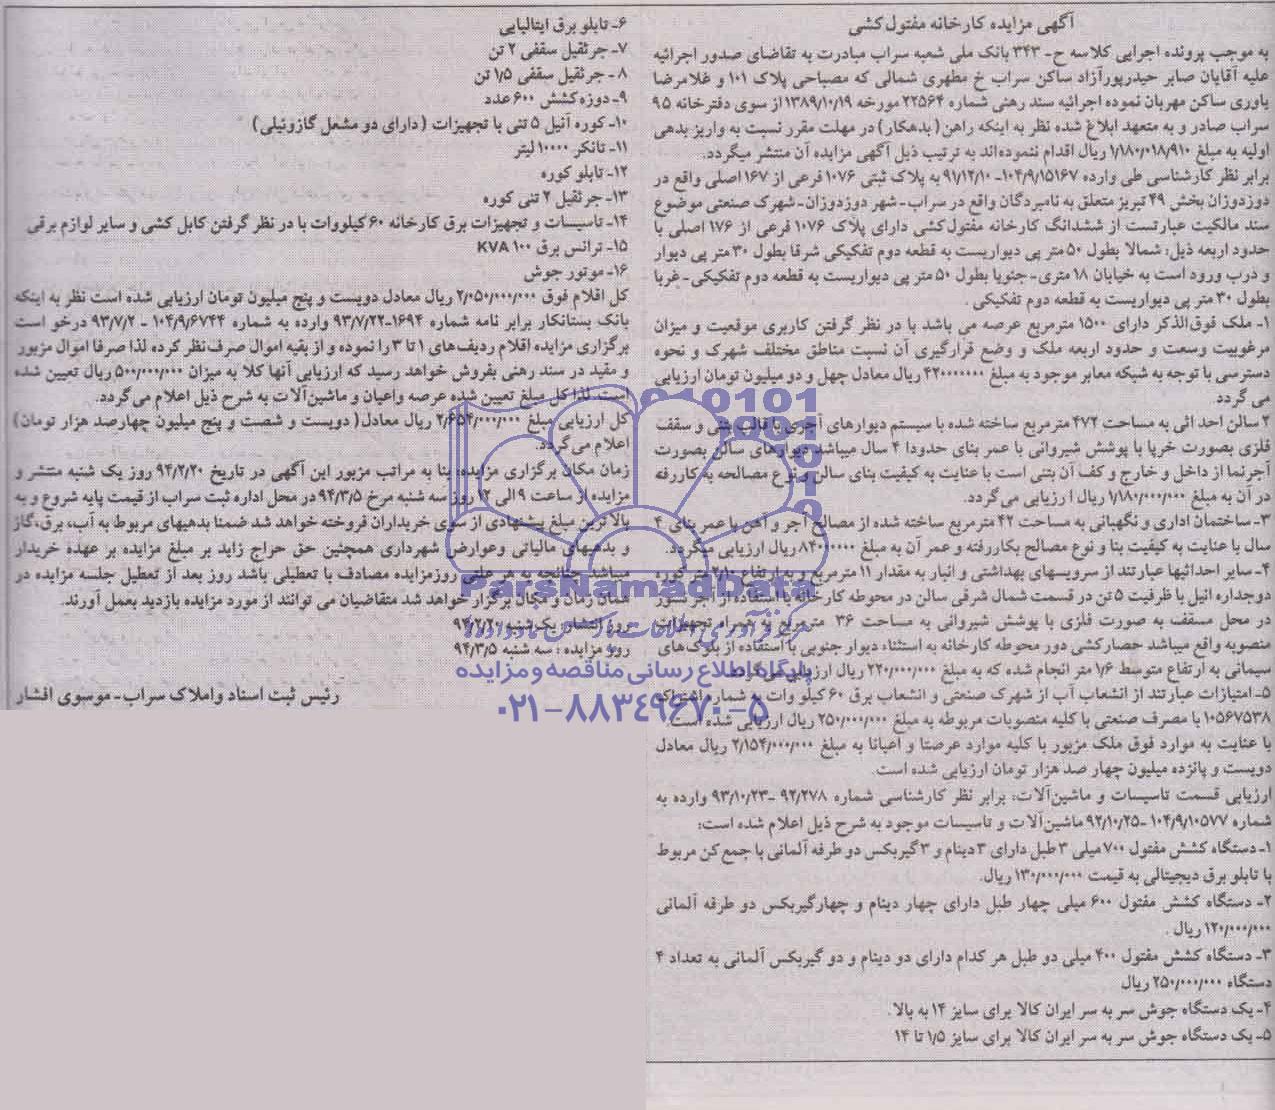 آگهی مزایده کارخانه مفتول‌کشی
به موجب پرونده اجرایی کلاسه ح- ۳۴۳ بانک ملی شعبه سراب مبادرت به تقاضای صدور اجرائیه
علیه آقایان صابر حیدرپورآزاد ساکن سراب خ مطهری شمالی که مصباحی پلاک ۱۰۱ و غلامرضا
یاوری ساکن مهربان نموده اجرائیه سند رهنی شماره ۲۲۵۶۴ مورخه ۱۳۸۹/۱۰/۱۹ از سوی دفترخانه ۹۵
سراب صادر و به متعهد ابلاغ شده نظر به اینکه راهن (بدهکار) در مهلت مقرر نسبت به واریز بدهی
اولیه به مبلغ ۱/۱۸۰/۰۱۸/۹۱۰ ریال اقدام ننموده‌اند به ترتیب ذیل آگهی مزایده آن منتشر میگردد.
برابر نظر کارشناسی طی وارده ۱۰۴/۹/۱۵۱۶۷- ۹۱/۱۲/۱۰ به پلاک ثبتی ۱۰۷۶ فرعی از ۱۶۷ اصلی واقع در
دوزدوزان بخش ۴۹ تبریز متعلق به نامبردگان واقع در سراب- شهر دوزدوزان- شهرک صنعتی موضوع
سند مالکیت عبارتست از ششدانگ کارخانه مفتول کشی دارای پلاک ۱۰۷۶ فرعی از ۱۷۶ اصلی با
حدود اربعه ذیل: شمالا بطول ۵۰ متر پی دیواریست به قطعه دوم تفکیکی شرقا بطول ۳۰ متر پی دیوار
و درب ورود است به خیابان ۱۸ متری- جنوبا بطول ۵۰ متر پی دیواریست به قطعه دوم تفکیکی- غربا
بطول ۳۰ متر پی دیواریست به قطعه دوم تفکیکی .
۱- ملک فوق‌الذکر دارای ۱۵۰۰ مترمربع عرصه می باشد با در نظر گرفتن کاربری موقعیت و میزان
مرغوبیت وسعت و حدود اربعه ملک و وضع قرارگیری آن نسبت مناطق مختلف شهرک و نحوه
دسترسی با توجه به شبکه معابر موجود به مبلغ ۴۲۰۰۰۰۰۰۰ ریال معادل چهل و دو میلیون تومان ارزیابی
می گردد
۲ سالن احداثی به مساحت ۴۷۲ مترمربع ساخته شده با سیستم دیوارهای آجری با قالب بتنی و سقف
فلزی بصورت خرپا با پوشش شیروانی با عمر بنای حدودا ۴ سال میباشد دیوارهای سالن بصورت
آجرنما از داخل و خارج و کف آن بتنی است با عنایت به کیفیت بنای سالن و نوع مصالحه به کاررفته
در آن به مبلغ ۱/۱۸۰/۰۰۰/۰۰۰ ریال ارزیابی می‌گردد.
۳- ساختمان اداری و نگهبانی به مساحت ۴۲ مترمربع ساخته شده از مصالح آجر و آهن با عمر بنای ۴
سال با عنایت به کیفیت بنا و نوع مصالح بکاررفته و عمر آن به مبلغ ۸۴۰۰۰۰۰۰ ریال ارزیابی میگردد.
۴- سایر احداثیها عبارتند از سرویسهای بهداشتی و انبار به مقدار ۱۱ مترمربع و به ارتفاع ۲/۱۰ متر کوره
دوجداره آنیل با ظرفیت ۵ تن در قسمت شمال شرقی سالن در محوطه کارخانه با استفاده از آجر نسوز
در محل مسقف به صورت فلزی با پوشش شیروانی به مساحت ۳۶ مترمربع به همراه تجهیزات
منصوبه واقع میباشد حصارکشی دور محوطه کارخانه به استثناء دیوار جنوبی با استفاده از بلوک‌های
سیمانی به ارتفاع متوسط ۱/۶ متر انجام شده که به مبلغ ۲۲۰/۰۰۰/۰۰۰ ریال ارزیابی می‌گردد
۵- امتیازات عبارتند از انشعاب آب از شهرک صنعتی و انشعاب برق ۶۰ کیلو وات به شماره اشتراک
۱۰۵۶۷۵۳۸ با مصرف صنعتی با کلیه منصوبات مربوطه به مبلغ ۲۵۰/۰۰۰/۰۰۰ ریال ارزیابی شده است.
با عنایت به موارد فوق ملک مزبور با کلیه موارد عرصتا و اعیانا به مبلغ ۲/۱۵۴/۰۰۰/۰۰۰ ریال معادل
دویست و پانزده میلیون چهار صد هزار تومان ارزیابی شده است.
ارزیابی قسمت تاسیسات و ماشین‌آلات: برابر نظر کارشناسی شماره ۹۲/۲۷۸ -۹۳/۱۰/۲۳ وارده به
شماره ۱۰۴/۹/۱۰۵۷۷ -۹۲/۱۰/۲۵ ماشین‌آلات و تاسیسات موجود به شرح ذیل اعلام شده است:
۱- دستگاه کشش مفتول ۷۰۰ میلی ۳ طبل دارای ۳ دینام و ۳ گیربکس دو طرفه آلمانی با جمع کن مربوط
با تابلو برق دیجیتالی به قیمت ۱۳۰/۰۰۰/۰۰۰ ریال.
۲- دستگاه کشش مفتول ۶۰۰ میلی چهار طبل دارای چهار دینام و چهارگیربکس دو طرفه آلمانی
۱۲۰/۰۰۰/۰۰۰ ریال .
۳- دستگاه کشش مفتول ۴۰۰ میلی دو طبل هر کدام دارای دو دینام و دو گیربکس آلمانی به تعداد ۴
دستگاه ۲۵۰/۰۰۰/۰۰۰ ریال
۴- یک دستگاه جوش سر به سر ایران کالا برای سایز ۱۴ به بالا.
۵- یک دستگاه جوش سر به سر ایران کالا برای سایز ۱/۵ تا ۱۴
۶- تابلو برق ایتالیایی
۷- جرثقیل سقفی ۲ تن
۸- جرثقیل سقفی ۱/۵ تن
۹- دوزه کشش ۶۰۰ عدد
۱۰- کوره آنیل ۵ تنی با تجهیزات (دارای دو مشعل گازوئیلی)
۱۱- تانکر ۱۰۰۰۰ لیتر
۱۲- تابلو کوره
۱۳- جرثقیل ۲ تنی کوره
۱۴- تاسیسات و تجهیزات برق کارخانه ۶۰ کیلووات با در نظر گرفتن کابل کشی و سایر لوازم برقی
۱۵- ترانس برق ۱۰۰ KVA
۱۶- موتور جوش
کل اقلام فوق ۲/۰۵۰/۰۰۰/۰۰۰ ریال معادل دویست و پنج میلیون تومان ارزیابی شده است نظر به اینکه
بانک بستانکار برابر نامه شماره ۱۶۹۴-۹۳/۷/۲۲ وارده به شماره ۱۰۴/۹/۶۷۴۴ - ۹۳/۷/۲ درخو است
برگزاری مزایده اقلام ردیف‌های ۱ تا ۳ را نموده و از بقیه اموال صرف‌نظر کرده لذا صرفا اموال مزبور
و مقید در سند رهنی بفروش خواهد رسید که ارزیابی آنها کلا به میزان ۵۰۰/۰۰۰/۰۰۰ ریال تعیین شده
است. لذا کل مبلغ تعیین شده عرصه واعیان و ماشین‌آلات به شرح ذیل اعلام می‌گردد.
کل ارزیابی مبلغ ۲/۶۵۴/۰۰۰/۰۰۰ ریال معادل (دویست و شصت و پنج میلیون چهارصد هزار تومان)
اعلام می‌گردد.
زمان مکان برگزاری مزایده: بنا به مراتب مزبور این آگهی در تاریخ ۹۴/۲/۲۰ روز یک شنبه منتشر و
مزایده از ساعت ۹ الی ۱۲ روز سه شنبه مرخ ۹۴/۳/۵ در محل اداره ثبت سراب از قیمت پایه شروع و به
بالاترین مبلغ پیشنهادی از سوی خریداران فروخته خواهد شد ضمنا بدهیهای مربوط به آب، برق، گاز
و بدهیهای مالیاتی وعوارض شهرداری همچنین حق حراج زاید بر مبلغ مزایده بر عهده خریدار
میباشد چنانچه به هر علتی روزمزایده مصادف با تعطیلی باشد روز بعد از تعطیل جلسه مزایده در
همان زمان و مکان برگزار خواهد شد متقاضیان می توانند از مورد مزایده بازدید بعمل آورند.
روز انتشار: یک شنبه ۹۴/۲/۲۰
روز مزایده : سه شنبه ۹۴/۳/۵
رئیس ثبت اسناد واملاک سراب- موسوی افشار
ParsNamadData
پایگاه اطلاع رسانی مناقصه و مزایده
۰۲۱-۸۸۳۴۹۶۷۰-۵